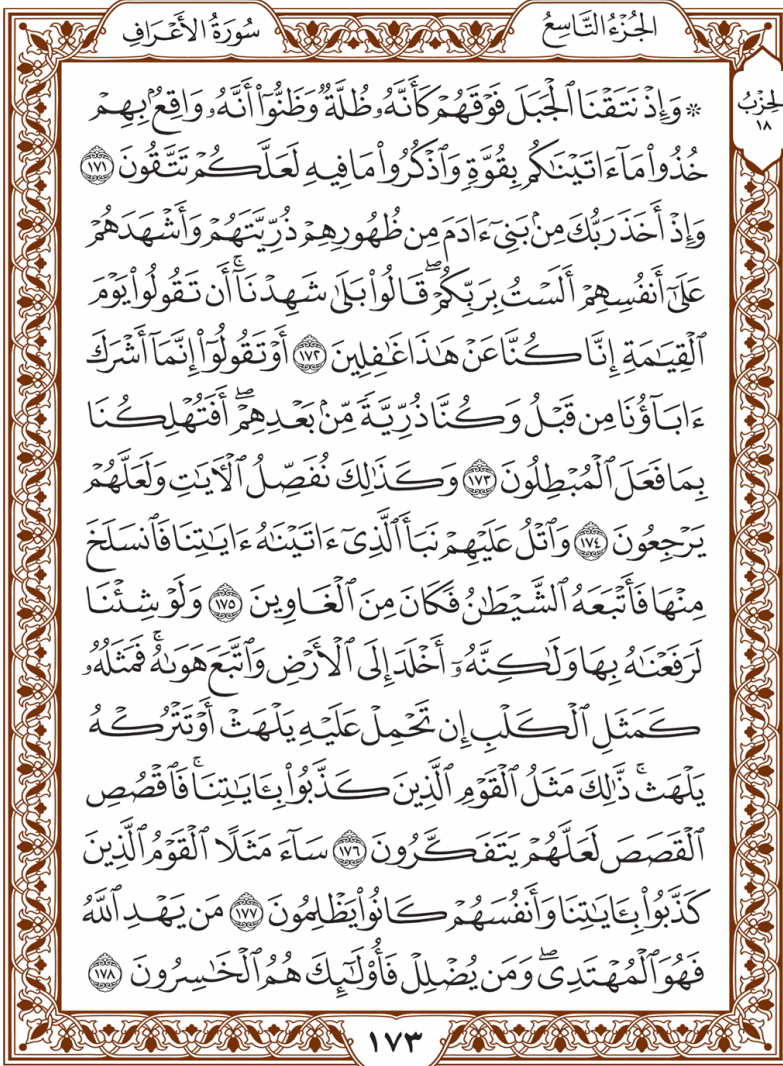 الجُزْءُ التَّاسِعُ
سُورَةُ الأَعْرَافِ
الحِزْبُ
١٨
۞ وَإِذْ نَتَقْنَا ٱلْجَبَلَ فَوْقَهُمْ كَأَنَّهُۥ ظُلَّةٌ وَظَنُّوٓا۟ أَنَّهُۥ وَاقِعٌۢ بِهِمْ
خُذُوا۟ مَآ ءَاتَيْنَـٰكُم بِقُوَّةٍ وَٱذْكُرُوا۟ مَا فِيهِ لَعَلَّكُمْ تَتَّقُونَ ١٧١
وَإِذْ أَخَذَ رَبُّكَ مِنۢ بَنِىٓ ءَادَمَ مِن ظُهُورِهِمْ ذُرِّيَّتَهُمْ وَأَشْهَدَهُمْ
عَلَىٰٓ أَنفُسِهِمْ أَلَسْتُ بِرَبِّكُمْ ۖ قَالُوا۟ بَلَىٰ شَهِدْنَآ ۚ أَن تَقُولُوا۟ يَوْمَ
ٱلْقِيَـٰمَةِ إِنَّا كُنَّا عَنْ هَـٰذَا غَـٰفِلِينَ ١٧٢ أَوْ تَقُولُوٓا۟ إِنَّمَآ أَشْرَكَ
ءَابَآؤُنَا مِن قَبْلُ وَكُنَّا ذُرِّيَّةً مِّنۢ بَعْدِهِمْ ۖ أَفَتُهْلِكُنَا
بِمَا فَعَلَ ٱلْمُبْطِلُونَ ١٧٣ وَكَذَٰلِكَ نُفَصِّلُ ٱلْـَٔايَـٰتِ وَلَعَلَّهُمْ
يَرْجِعُونَ ١٧٤ وَٱتْلُ عَلَيْهِمْ نَبَأَ ٱلَّذِىٓ ءَاتَيْنَـٰهُ ءَايَـٰتِنَا فَٱنسَلَخَ
مِنْهَا فَأَتْبَعَهُ ٱلشَّيْطَـٰنُ فَكَانَ مِنَ ٱلْغَاوِينَ ١٧٥ وَلَوْ شِئْنَا
لَرَفَعْنَـٰهُ بِهَا وَلَـٰكِنَّهُۥٓ أَخْلَدَ إِلَى ٱلْأَرْضِ وَٱتَّبَعَ هَوَىٰهُ ۚ فَمَثَلُهُۥ
كَمَثَلِ ٱلْكَلْبِ إِن تَحْمِلْ عَلَيْهِ يَلْهَثْ أَوْ تَتْرُكْهُ
يَلْهَث ۚ ذَّٰلِكَ مَثَلُ ٱلْقَوْمِ ٱلَّذِينَ كَذَّبُوا۟ بِـَٔايَـٰتِنَا ۚ فَٱقْصُصِ
ٱلْقَصَصَ لَعَلَّهُمْ يَتَفَكَّرُونَ ١٧٦ سَآءَ مَثَلًا ٱلْقَوْمُ ٱلَّذِينَ
كَذَّبُوا۟ بِـَٔايَـٰتِنَا وَأَنفُسَهُمْ كَانُوا۟ يَظْلِمُونَ ١٧٧ مَن يَهْدِ ٱللَّهُ
فَهُوَ ٱلْمُهْتَدِى ۖ وَمَن يُضْلِلْ فَأُو۟لَـٰٓئِكَ هُمُ ٱلْخَـٰسِرُونَ ١٧٨
١٧٣